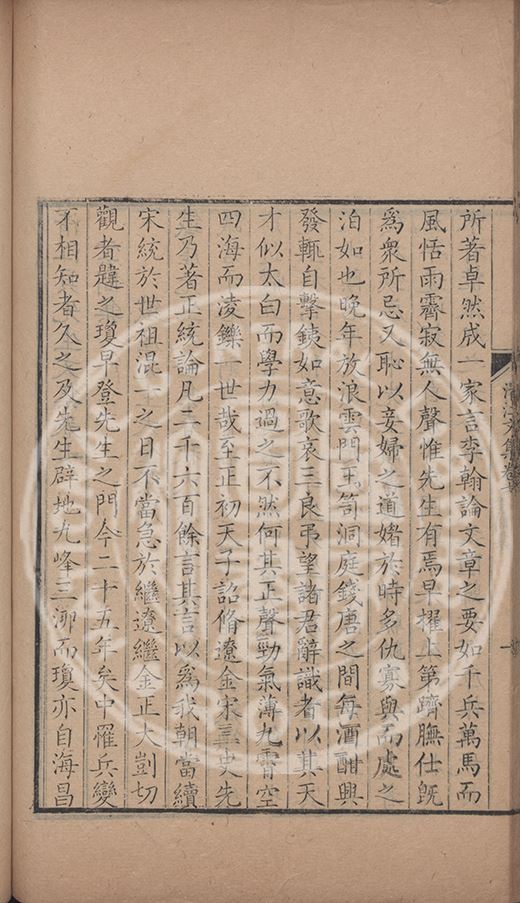 所著卓然成一家言李翰論文章之要如千兵萬馬而
風恬雨霽寂無人聲惟先生有焉早擢上第躋膴仕旣
爲衆所忌又恥以妾婦之道媚於時多仇寡與而處之
泊如也晚年放浪雲門玉笥洞庭錢唐之間每酒酣興
發輒自擊鐵如意歌哀三良弔望諸君辭識者以其天
才似太白而學力過之不然何其正聲勁氣薄九霄空
四海而凌鑠一世哉至正初天子詔脩遼金宋三史先
生乃著正統論凡二千六百餘言其言以爲我朝當續
宋統於世祖混一之日不當急於繼遼繼金正大剴切
觀者韙之瓊早登先生之門今二十五年矣中罹兵變
不相知者久之及先生辟地九峰三泖而瓊亦自海昌